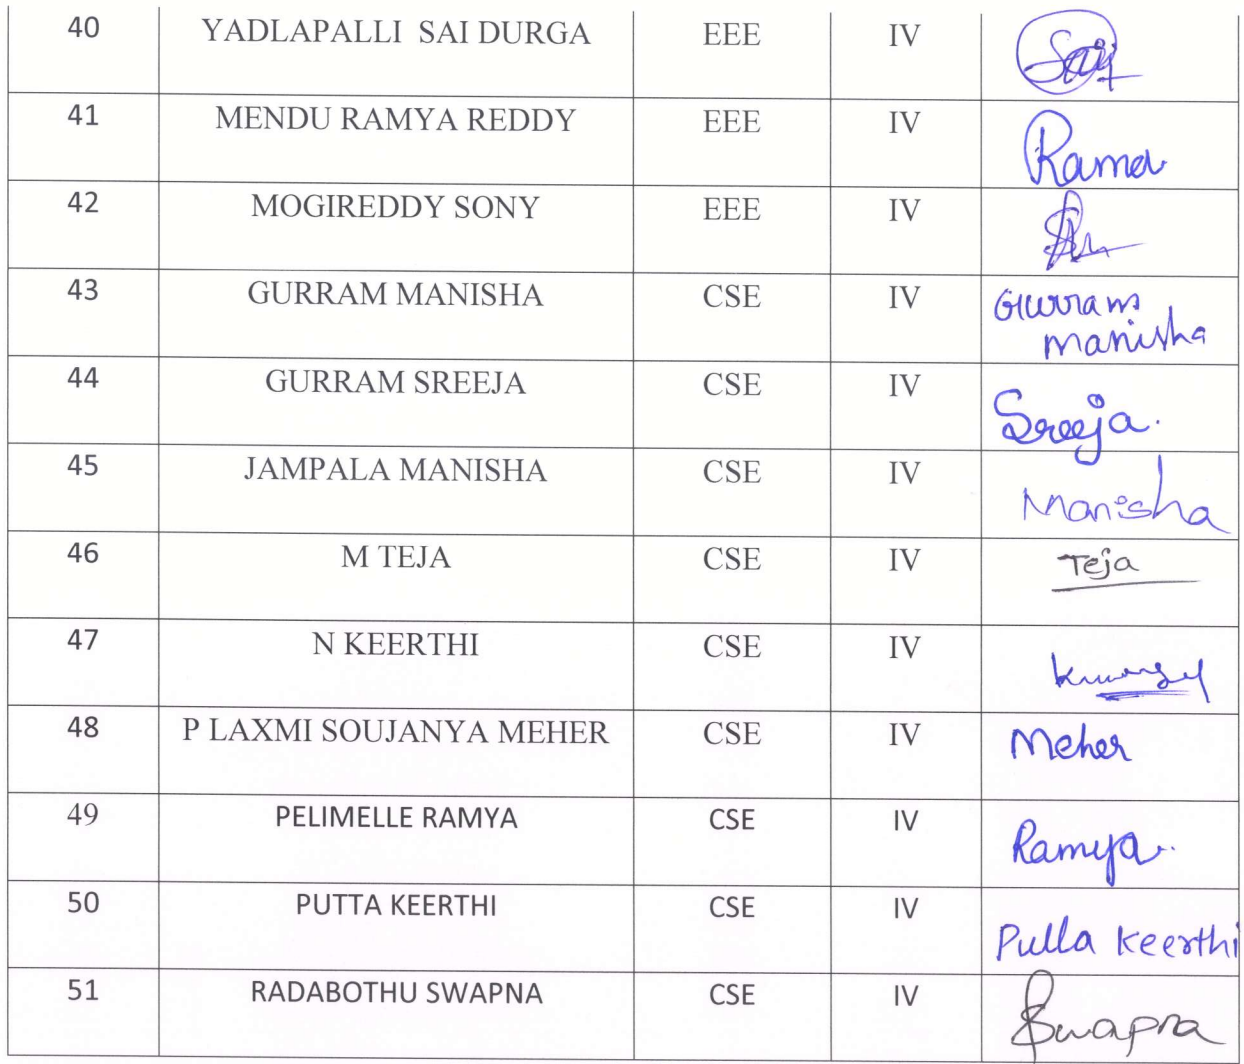 40 YADLAPALLI SAI DURGA EEE IV Sai
41 MENDU RAMYA REDDY EEE IV Rama
42 MOGIREDDY SONY EEE IV
43 GURRAM MANISHA CSE IV Gurram
manisha
44 GURRAM SREEJA CSE IV Sreeja.
45 JAMPALA MANISHA CSE IV Manisha
46 M TEJA CSE IV Teja
47 N KEERTHI CSE IV
48 P LAXMI SOUJANYA MEHER CSE IV Meher
49 PELIMELLE RAMYA CSE IV Ramya.
50 PUTTA KEERTHI CSE IV Pulla Keerthi
51 RADABOTHU SWAPNA CSE IV Swapna